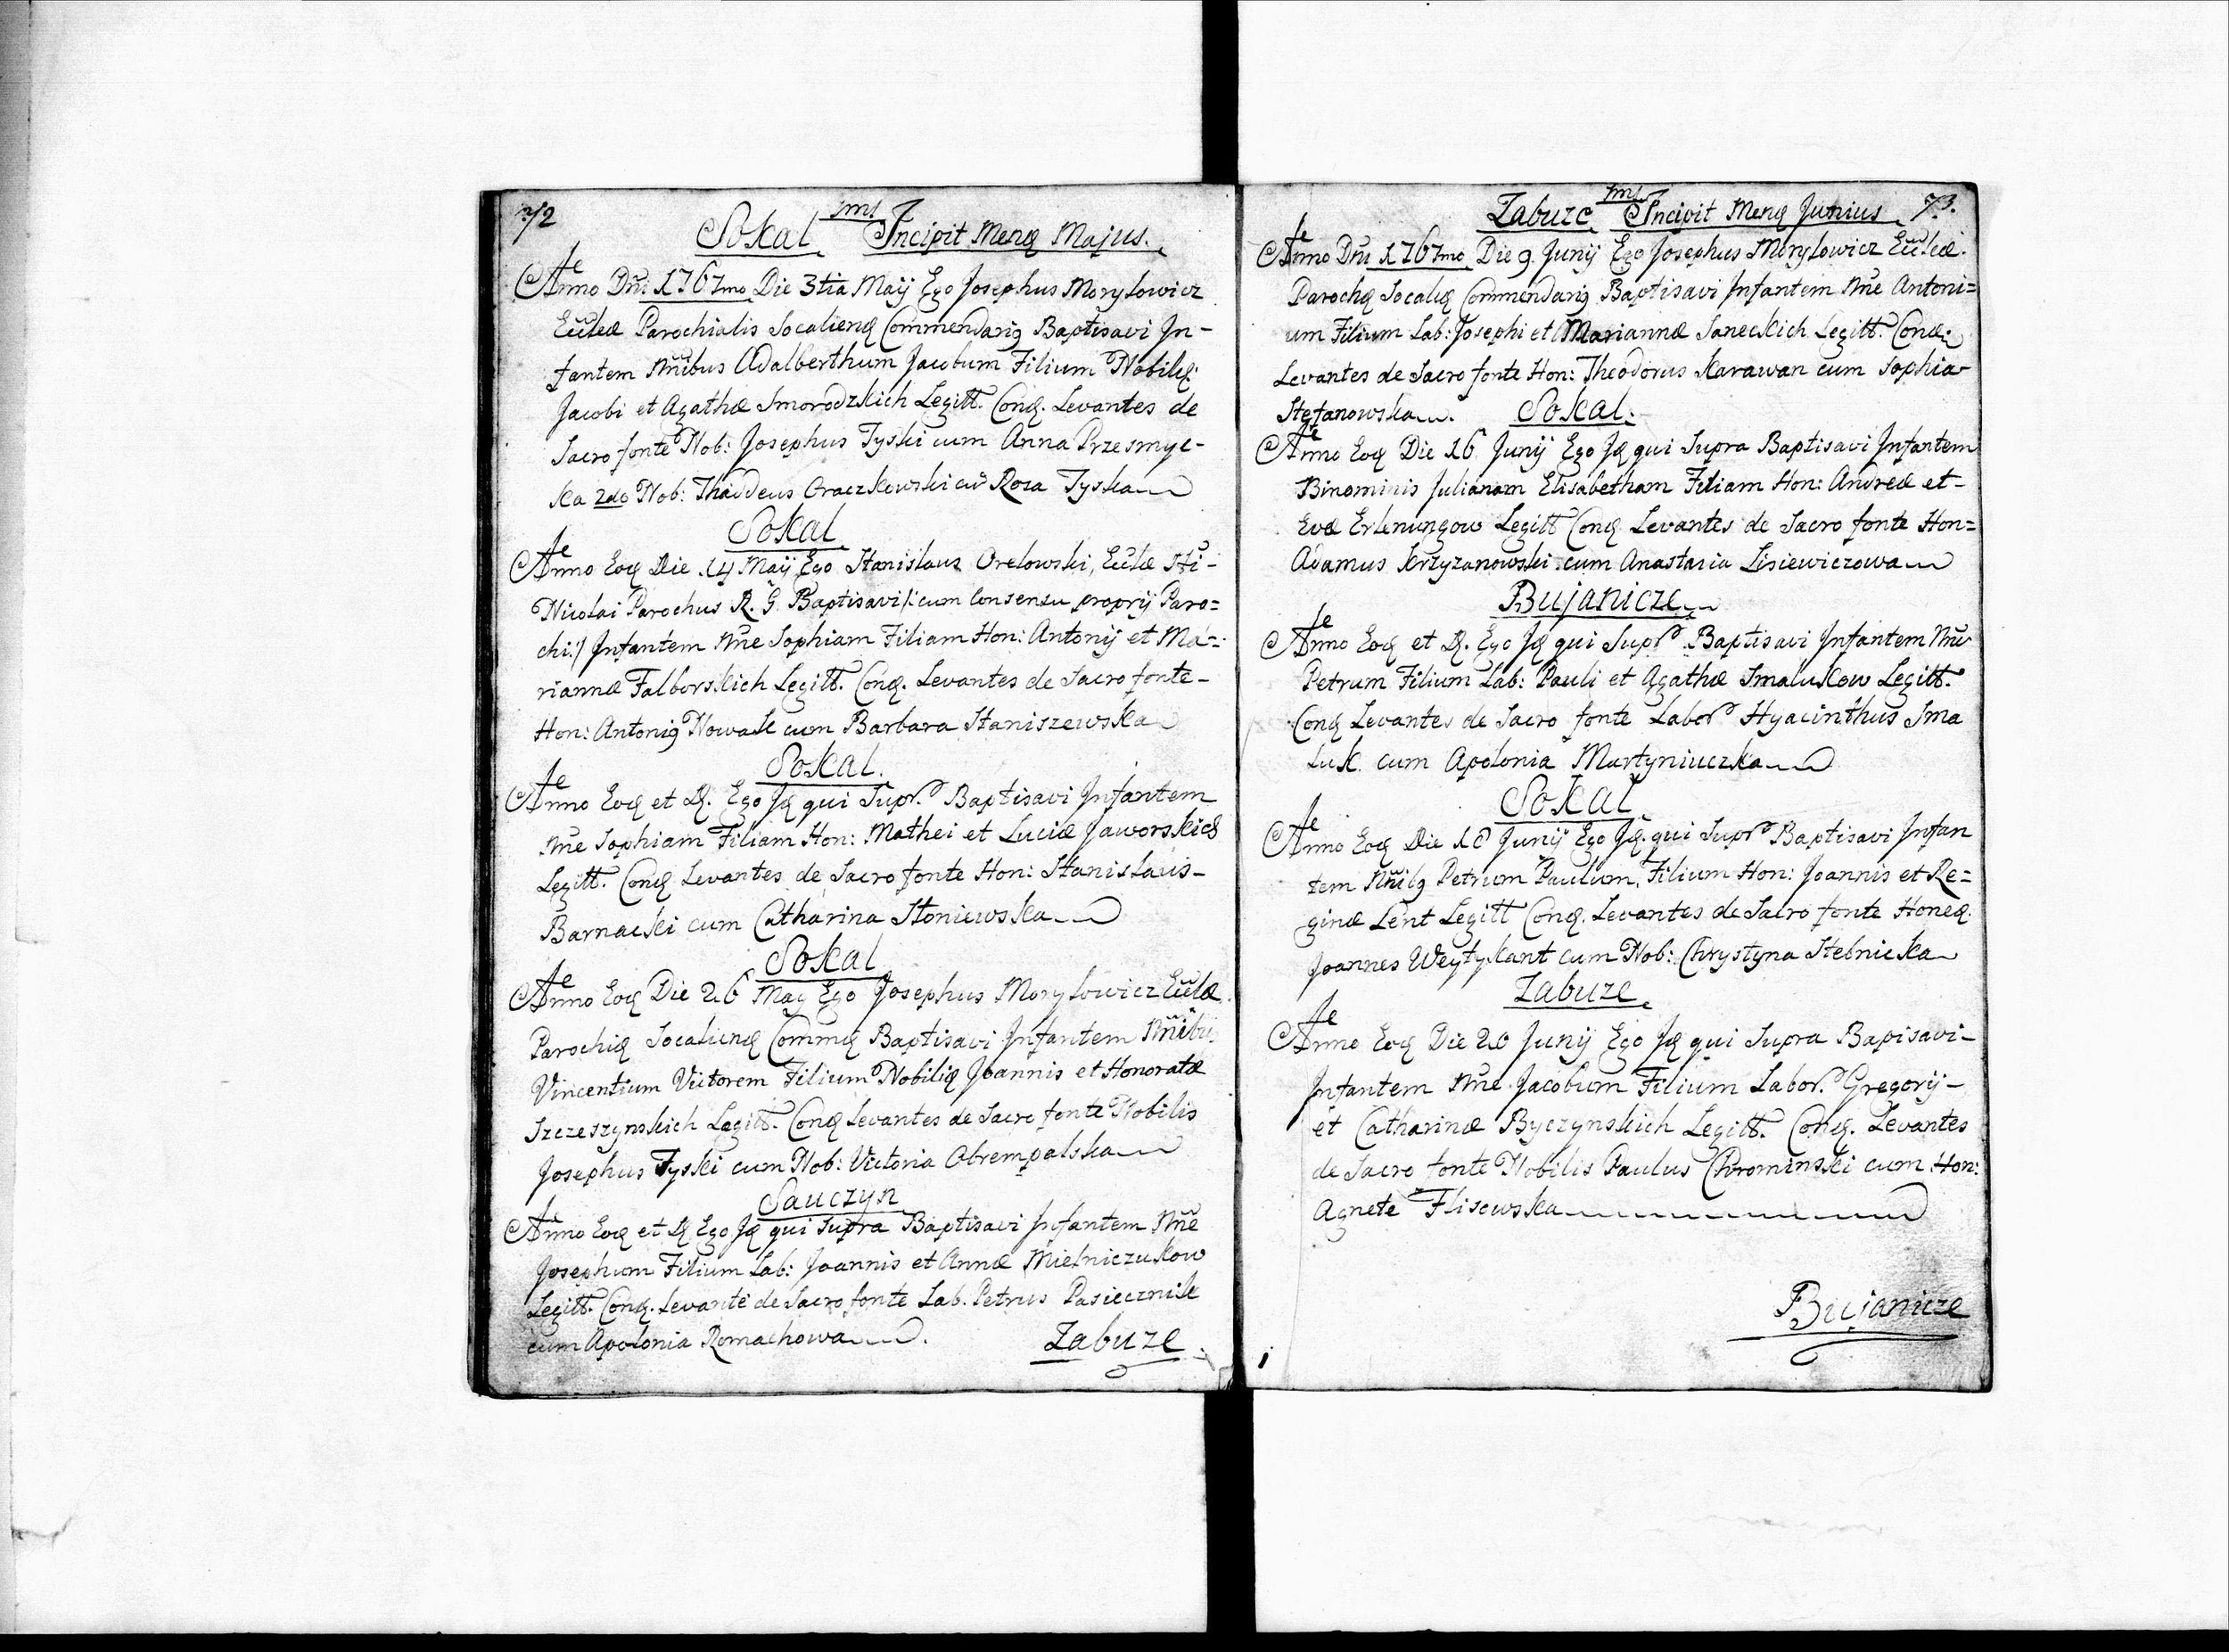 72
Sokal Incipit Menq Majus.
Anno Dni 1767mo Die 3tia Maij Ego Josephus Morylowicz
Eccleæ Parochialis Socalienq Commendariq Baptisavi In-
fantem Nnibus Adalberthum Jacobum Filium Nobiliq:
Jacobi et Agathæ Smorodzkich Legitt. Conq. Levantes de
Sacro fonte Nob: Josephus Tyski cum Anna Przesmyc-
ka 2do Nob: Thaddeus Oraczkowski cu Roza Tyska
Sokal
Anno Eoq Die 14 Maij Ego Stanislaus Orelowski, Eccleæ Sti-
Nicolai Parochus R. G. Baptisavi /:cum Consensu proprij Paro=
chi:/ Infantem Nne Sophiam Filiam Hon: Antonij et Ma=
riannæ Falborskich Legitt. Conq. Levantes de Sacro fonte-
Hon: Antoniq Nowak cum Barbara Staniszewska
Sokal.
Anno Eoq et D. Ego Iq qui Supr. Baptisavi Infantem
Nne Sophiam Filiam Hon: Mathei et Luciæ Jaworskich
Legitt. Conq Levantes de Sacro fonte Hon: Stanislaus-
Barnacki cum Catharina Stoniewska
Sokal
Anno Eoq Die 26 May Ego Josephus Morylowicz Eccleæ
Parochiq Socalienq Commq Baptisavi Infantem Nnibu
Vincentium Victorem Filium Nobiliq Joannis et Honoratæ
Szczeszynskich Legitt. Conq Levantes de Sacro fonte Nobilis
Josephus Tyski cum Nob: Victoria Obrempalska
Sauczyn
Anno Eoq et D Ego Iq qui Supra Baptisavi Infantem Nne
Josephum Filium Lab: Joannis et Annæ Mielniczukow
Legitt. Conq. Levante de Sacro fonte Lab. Petrus Pasiecznik
cum Apolonia Romachowa.
Zabuze
Zabuze Incipit Menq Junius 73.
Anno Dni 1767mo Die 9 Junij Ego Josephus Morylowicz Eccleæ.
Parochq Socaliq Commendariq Baptisavi Infantem Nne Antoni=
um Filium Lab: Josephi et Mariannæ Saneckich Legitt. Conq.
Levantes de Sacro fonte Hon: Theodorus Karawan cum Sophia
Stefanowska. Sokal.
Anno Eoq Die 16 Junij Ego Iq qui Supra Baptisavi Infantem
Binominis Julianam Elisabetham Filiam Hon: Andreæ et-
Evæ Erlenungow Legitt Conq Levantes de Sacro fonte Hon=
Adamus Krzyzanowski cum Anastazia Lisiewiczowa
Bujanicze
Anno Eoq et D. Ego Iq qui Supr Baptisavi Infantem Nne
Petrum Filium Lab: Pauli et Agathæ Smalukow Legitt.
Conq Levantes de Sacro fonte Labor Hyacinthus Sma
luk cum Apolonia Martyniuczka
Sokal
Anno Eoq Die 18 Junij Ego Iq. qui Supr Baptisavi Infan
tem Nnibq Petrum Paulum, Filium Hon: Joannis et Re=
ginæ Lent Legitt Conq. Levantes de Sacro fonte Honeq.
Joannes Weytykant cum Nob: Chrystyna Stebnicka
Zabuze.
Anno Eoq Die 20 Junij Ego Iq qui Supra Bapisavi-
Infantem Nne Jacobum Filium Labor. Gregorij-
et Catharinæ Byczynskich Legitt. Conq. Levantes
de Sacro fonte Nobilis Paulus Chrominski cum Hon:
Agnete Flisowska
Bujanicze